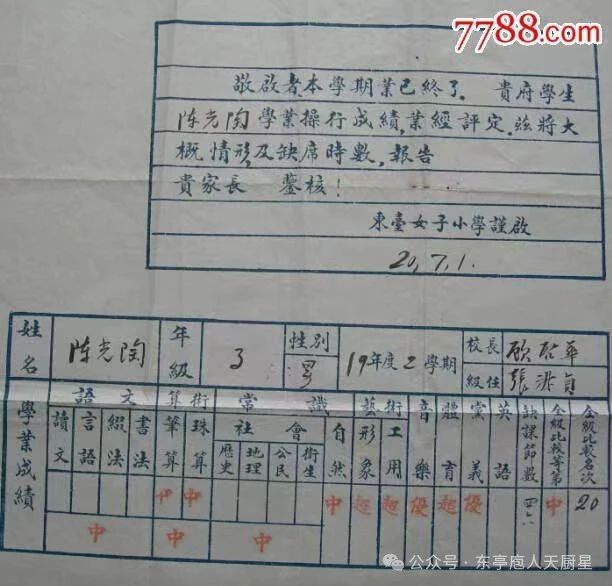 7788.com
敬啟者,本學期業已終了, 貴府學生
陈光陶學業操行成績,業經評定,兹將大
概情形,及缺席時數,報告
貴家長 鑒核!
東臺女子小學謹啟
20,7,1.
姓名 陈光陶 年級 3 性別 男 19年度2學期 校長
級任
學業成績
語文 算術 常識 藝術 音樂 體育 黨義 英語 缺課節數 全級比較等第 全級比較名次
社會 自然 形象 工用
讀文 言語 綴法 書法 筆算 珠算 歷史 地理 公民 衛生
中 中 中 超 超 優 超 優 四六 中 20
中 中 中
公众号·东亭庖人天厨星